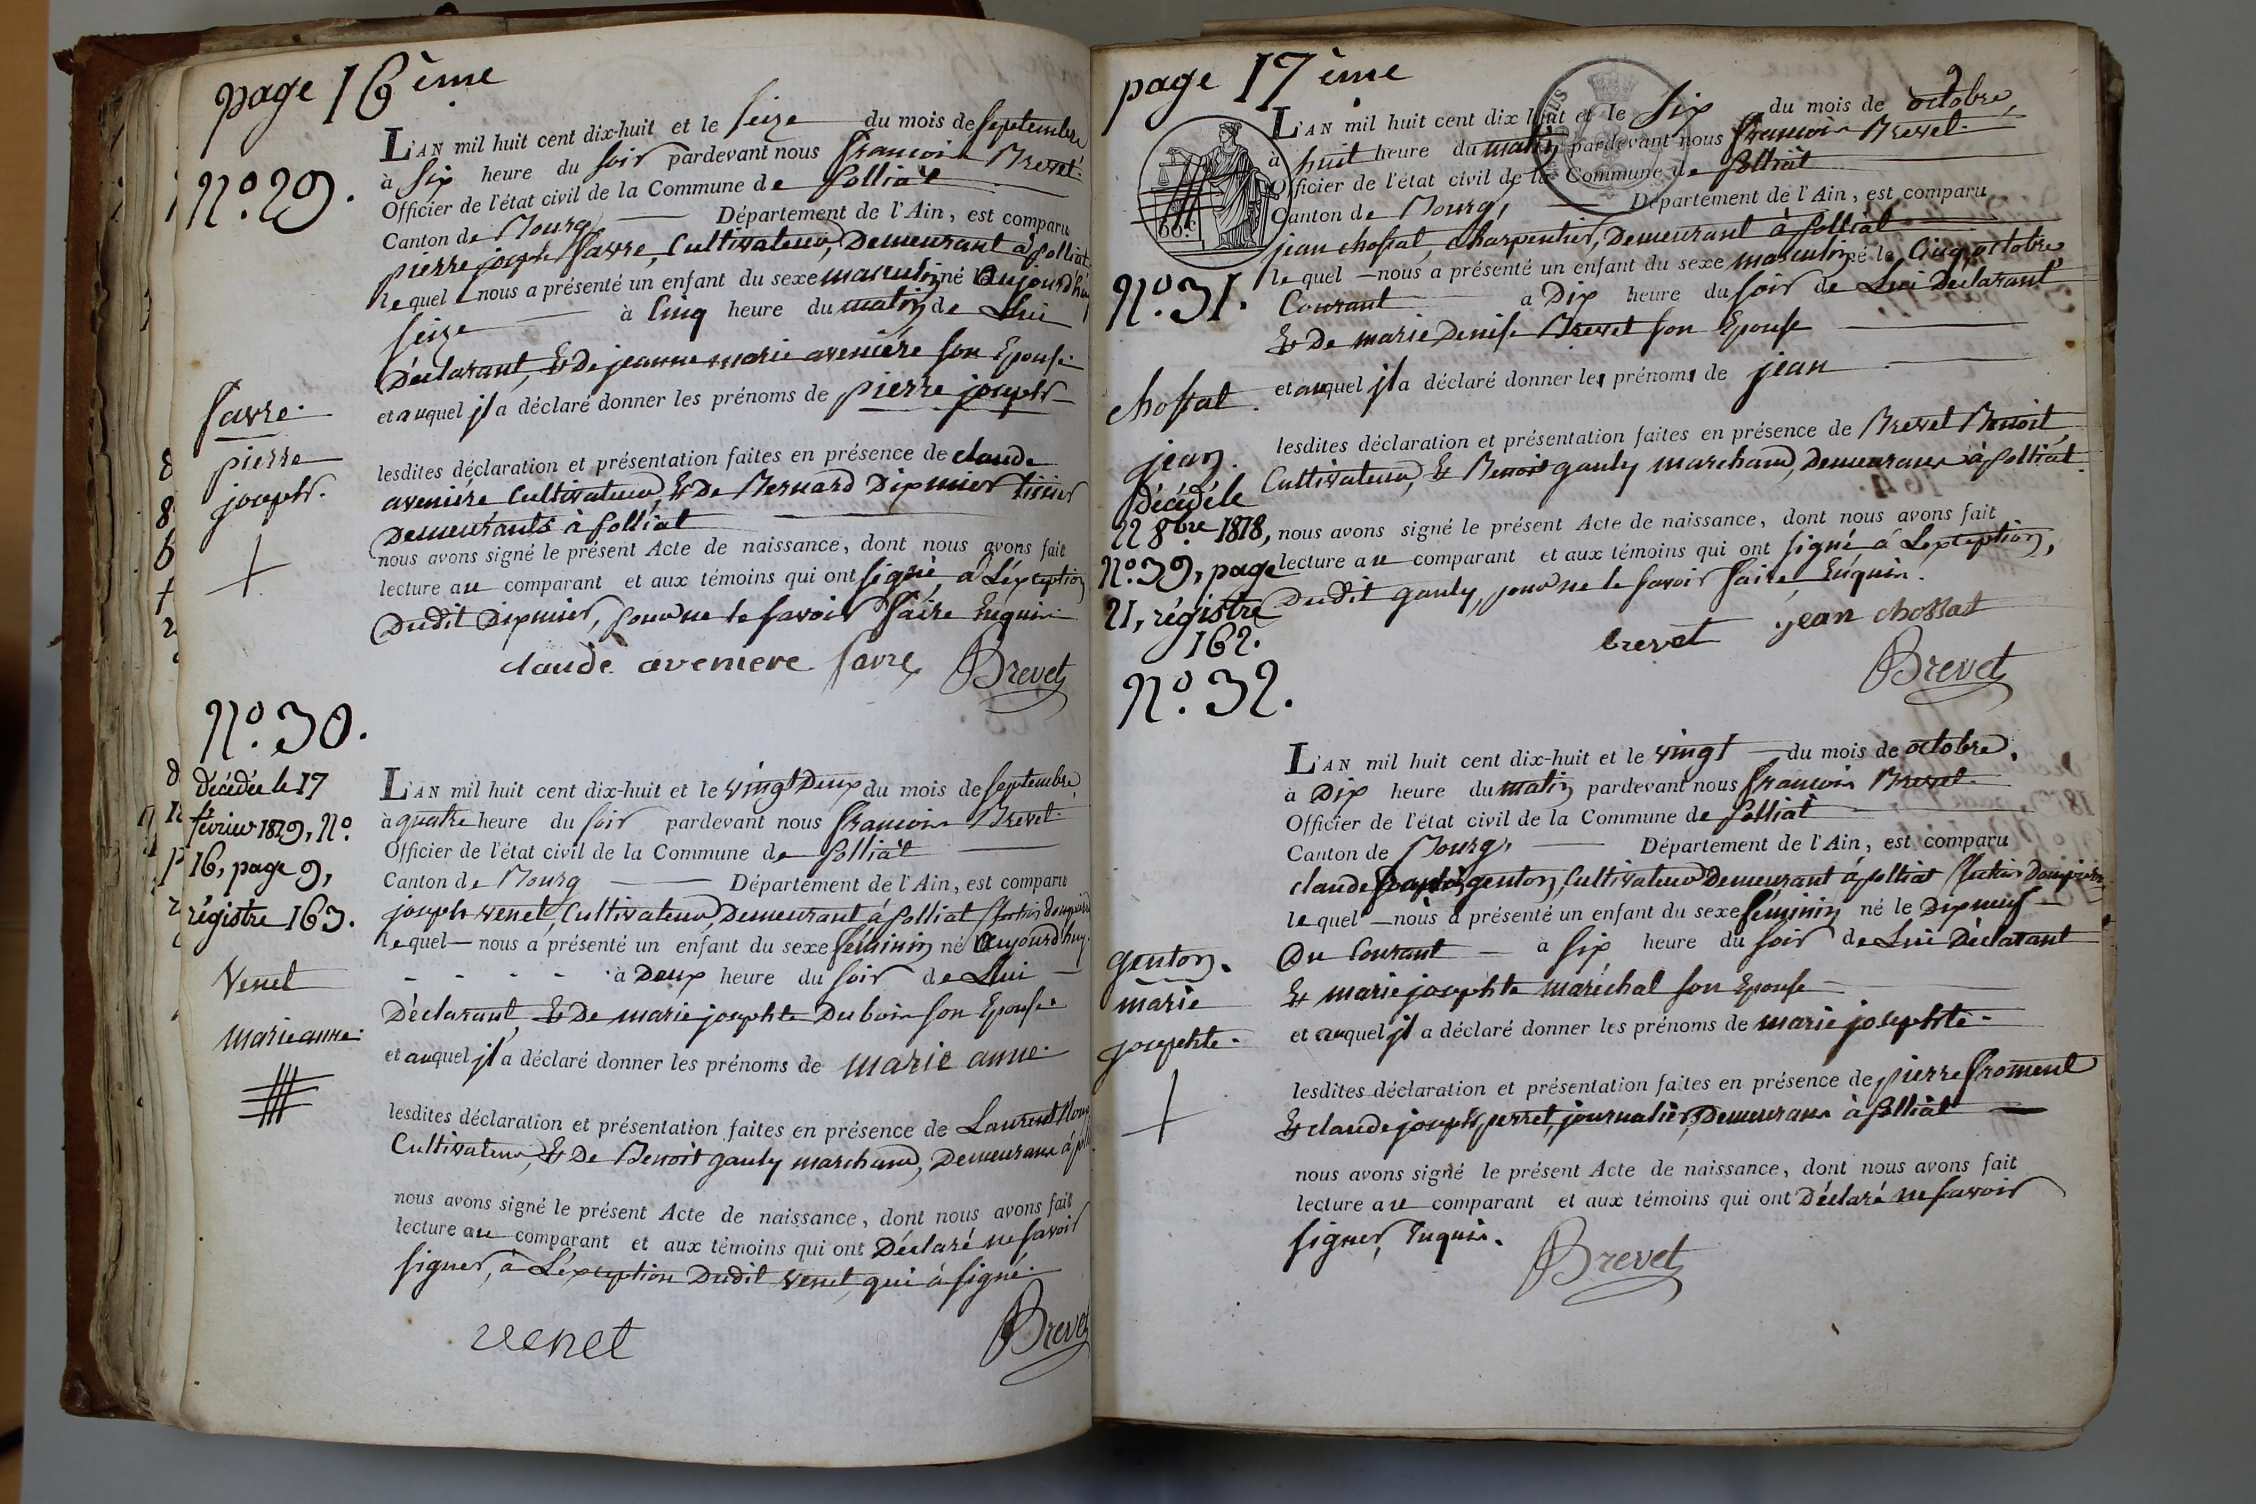 page 16ème
N.º 29.
L'AN mil huit cent dix-huit et le seize du mois de septembre
à six heure du soir pardevant nous françois Brevet
Officier de l'état civil de la Commune de polliat
Canton de Bourg Département de l'Ain, est comparu
pierre joseph favre, Cultivateur, Demeurant à polliat
lequel nous a présenté un enfant du sexe masculin né aujourd'huy
seize à Cinq heure du matin de Lui
Déclarant, & de jeanne marie avenière son Epouse
et auquel jl a déclaré donner les prénoms de pierre joseph
favre
pierre
joseph.
lesdites déclaration et présentation faites en présence de claude
avenière Cultivateur, & De Bernard Dixmier
Demeurants à polliat
nous avons signé le présent Acte de naissance, dont nous avons fait
lecture au comparant et aux témoins qui ont signé, à L'exception
Dudit Dixmier, pour ne le savoir faire Enquis
claude aveniere favre Brevet
N.º 30.
Décédée le 17
février 1829, N.º
16, page 9,
régistre 163.
venet
marieanne
L'AN mil huit cent dix-huit et le vingt Deux du mois de septembre
à quatre heure du soir pardevant nous françois Brevet
Officier de l'état civil de la Commune de polliat
Canton de Bourg Département de l'Ain, est comparu
joseph venet, Cultivateur, Demeurant à polliat
lequel nous a présenté un enfant du sexe féminin né aujourd'huy
à Deux heure du soir de Lui
Déclarant, & De marie josephte Dubois son Epouse
et auquel jl a déclaré donner les prénoms de marie anne
lesdites déclaration et présentation faites en présence de Laurent
Cultivateur, & De Benoit gauly marchand, Demeurans à
nous avons signé le présent Acte de naissance, dont nous avons fait
lecture au comparant et aux témoins qui ont Déclaré ne savoir
signer, à L'exception Dudit venet, qui à signé
venet Brevet
page 17ème
60.c
N.º 31.
L'AN mil huit cent dix-huit et le six du mois de octobre,
à huit heure du matin pardevant nous françois Brevet
Officier de l'état civil de la Commune de polliat
Canton de Bourg, Département de l'Ain, est comparu
jean chossat, charpentier, Demeurant à polliat
lequel nous a présenté un enfant du sexe masculin né le Cinq octobre
Courant à Dix heure du soir de Lui Déclarant
& De marie Denise Brevet son Epouse
et auquel jl a déclaré donner les prénoms de jean
chossat
jean
Décédé le
22 8bre 1818,
N.º 39, page
21, régistre
162.
lesdites déclaration et présentation faites en présence de Brevet Benoit,
Cultivateur, & Benoit gauly marchand, Demeurans à polliat
nous avons signé le présent Acte de naissance, dont nous avons fait
lecture au comparant et aux témoins qui ont signé à L'exception,
Dudit gauly, pour ne le savoir faire, Enquis.
brevet jean chossat
Brevet
N.º 32.
L'AN mil huit cent dix-huit et le vingt du mois de octobre,
à Dix heure du matin pardevant nous françois Brevet
Officier de l'état civil de la Commune de polliat
Canton de Bourg, Département de l'Ain, est comparu
claude joseph genton, Cultivateur Demeurant à polliat
lequel nous a présenté un enfant du sexe féminin né le Dixneuf
Du Courant à six heure du soir de Lui Déclarant
& marie josephte maréchal son Epouse
et auquel jl a déclaré donner les prénoms de marie josephte
genton.
marie
josephte
lesdites déclaration et présentation faites en présence de pierre froment
& claude joseph perret, journalier, Demeurans à polliat
nous avons signé le présent Acte de naissance, dont nous avons fait
lecture au comparant et aux témoins qui ont Déclaré ne savoir
signer, Enquis.
Brevet